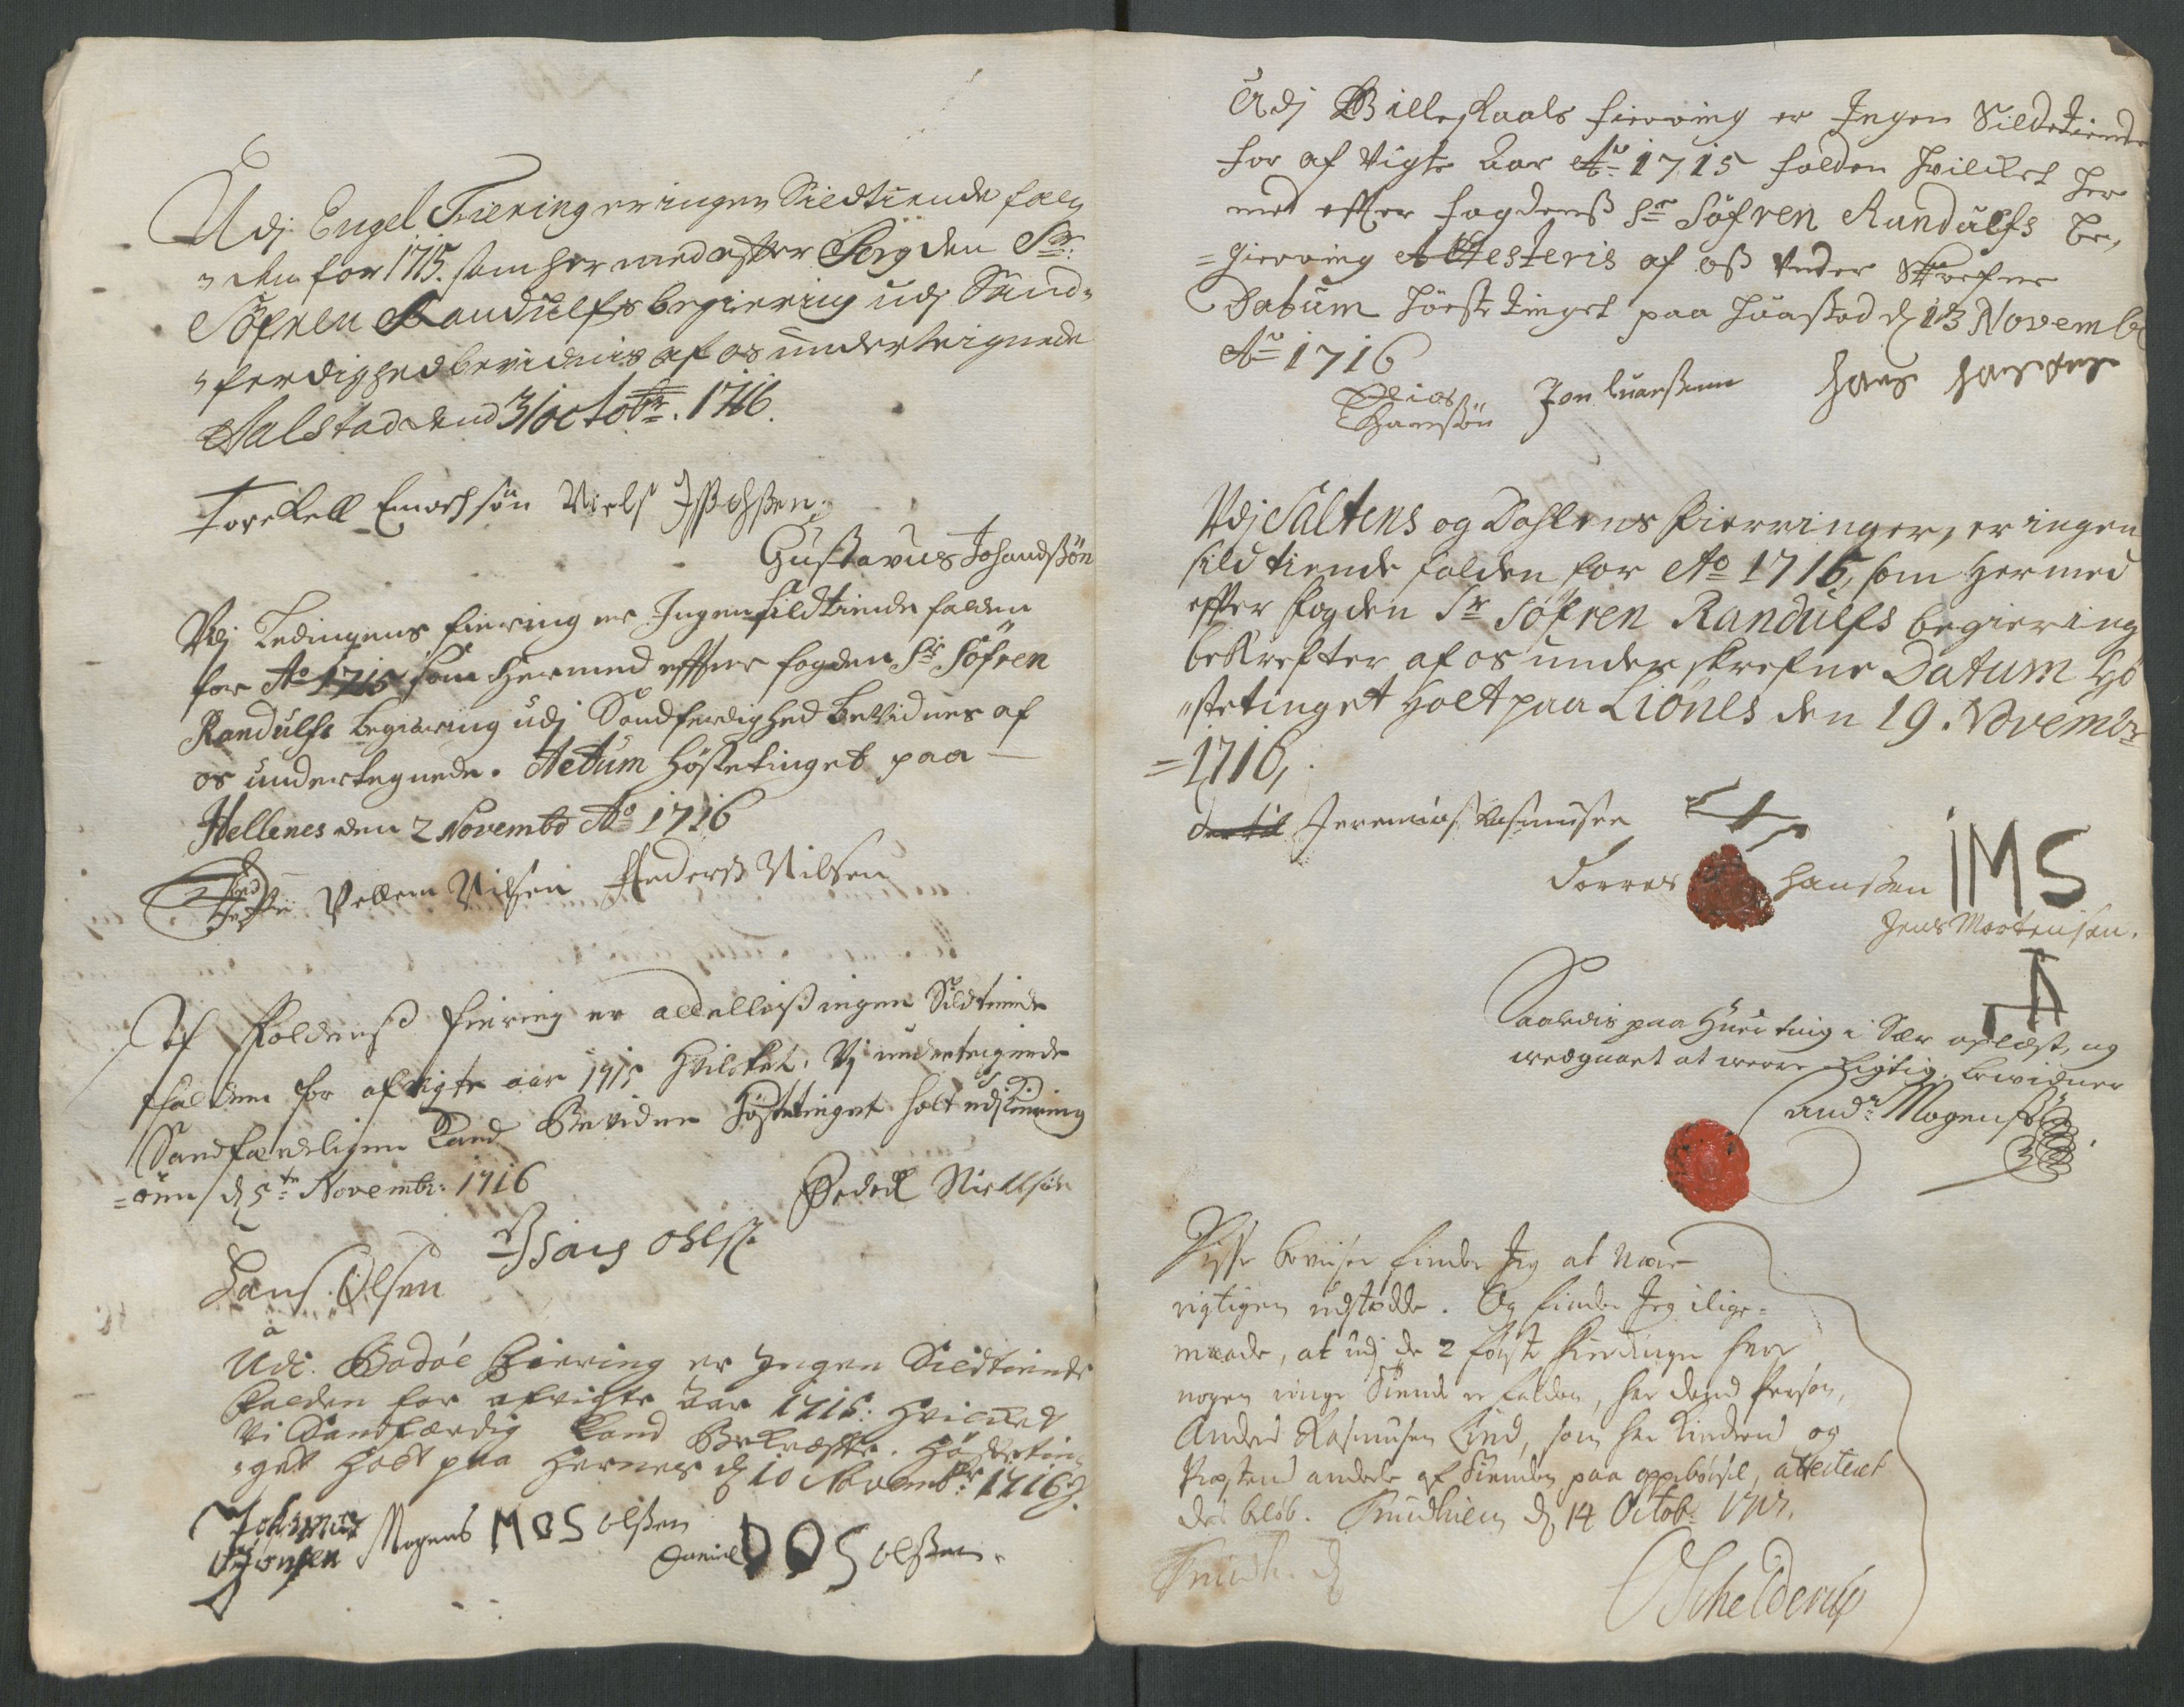 Udj Engel Fiering er ingen Sildtiende fal,
"den for 1715. som her med efter Fogden Sr:
Söfren Randulfs begiering udj Sand,
"ferdighed bevidnis af os underteignede
Aalstad dend 31 octobr. 1716.
Torckell Enochsön Niels
Gustavus Johandsön
Udj Ledingens fiering er Ingen sildtiende falden
for Ao 1715 som hermed effter fogden Sr Söfren
Randulfs begiering udj Sandferdighed beVidnes af
os undertegnede. Actum Höstetinget paa
Hellenes den 2 Novembr Ao 1716
Vellem Nilsen Anders Nilsen
Af Foldens fiering er aldelliss ingen Sildtiende
falden for afvigte aar 1715 Hvilchet Vj underteignede
Sandfærdeligen Kand Bevidne Höstetinget holt udj Kiering
=öen d 5te Novembr: 1716
Peder Niellsön
Hans Olsen Isaig Olss
Udi Bodöe Fiering er Ingen Sildtiende
falden for afvigte aar 1715: Hvilket
Vi Sandfærdig Kand Bekræffte. Höstetin,
"get Holt paa Hernes d 10 Novembr: 1716
Johannes
Jonsen Mogens MOS olssen
Daniel DOS olssen.
Udj Billeskaals fierving er Ingen Sildetiende
for af Vigte Aar Ao 1715 falden hvilcket her
med effter fogdenss Sr Söfren Randulfs be,
=gierving Attesteris af oss Under Skrefne
Datum Höste tinget paa Huastad d 13 Novembr
Ao 1716
Elias
Hanssön Jon Iuerssenn Hans Hansen
Udj Saltens og Dahlens fierringer, er ingen
sild tiende falden for Ao 1715, som Hermed
effter fogden Sr Söfren Randulfs begiering
bekrefter af os under skrefne Datum Hö
"stetinget Holt paa Liönes den 19. Novembr
=1716,
Jeremias Rasmusen
Torres Hanssen IMS
Jens Mortensen.
Saaledis paa Huer ting i Sær oplæst, og
vedgaaet at werre Rigtig, bevidner
Andr: Mogenss
Disse beviser finder Jeg at være
rigtigen udstædde. Og finder Jeg ilige=
maade, at udj de 2 förste fierdinger hvor
nogen ringe Tiende er falden, har dend Person,
Anders Rasmusen Lind, som har Kirchens og
Præstens andeele af Tienden paa oppebörsel, attesteret
des belöb. Trundhiem d 14 Octobr 1717.
Trundh. d
Schelderup